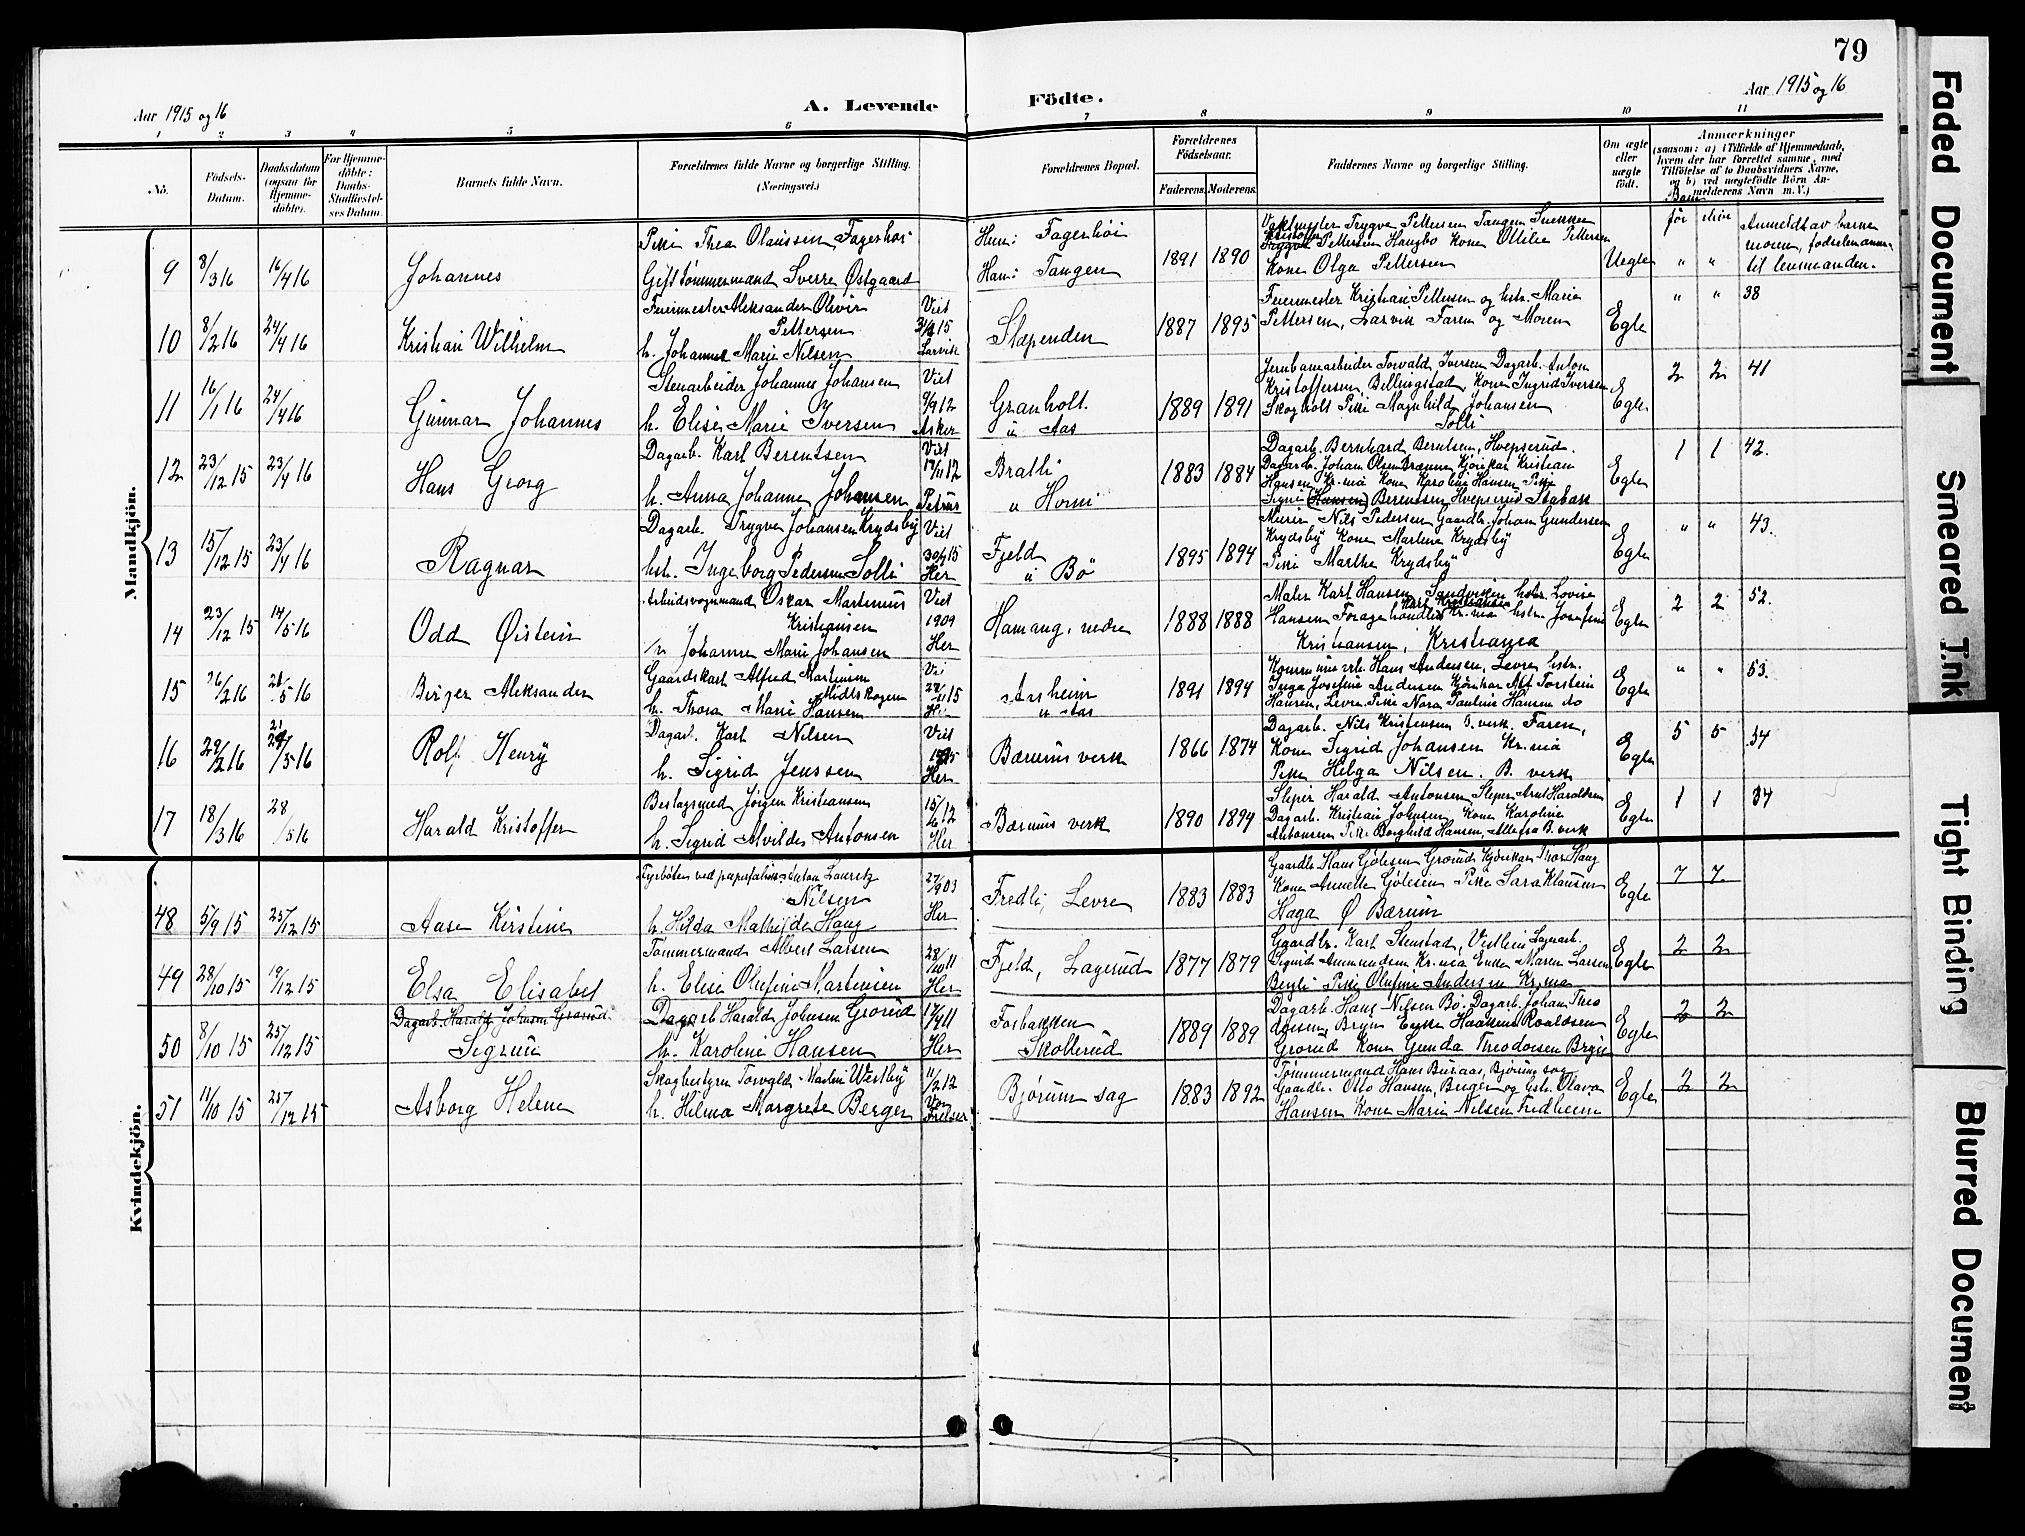 79
Aar 1915 og 16
A. Levende Födte.
Aar 1915 og 16
1 2 3 4 5 6 7 8 9 10 11
Nö.
Födsels-Datum.
Daabsdatum (ogsaa for Hjemme-döbte).
For Hjemme-döbte: Daabs-Stadfæstel-ses Datum.
Barnets fulde Navn.
Forældrenes fulde Navne og borgerlige Stilling. (Næringsvei.)
Forældrenes Bopæl.
Forældrenes Födselsaar.
Faderens. Moderens.
Faddernes Navne og borgerlige Stilling.
Om ægte eller uægte födt.
Anmærkninger
(saasom: a) i Tilfælde af Hjemmedaab, hvem der har forrettet samme, med Tilföielse af to Daabsvidners Navne, og b) ved uægtefödte Börn An-melderens Navn m. V.)
Mandkjön.
Pike Thea Olaussen Fagerhøi
Hun: Fagerhøi
Vaktmester Trygve Pettersen Tangen Snekker
Kristoffer Pettersen Haugbo Kone Ottilie Pettersen
9 8/3 16 16/4 16 Johannes
Gift tømmermand Sverre Østgaard
Han: Tangen 1891 1890
Kone Olga Pettersen
Uegte " "
Anmeldt av barne
moren, fødselsanm.
til lensmanden.
Feiermester Aleksander Olivir Pettersen
Viet
Larvik
10 8/2 16 24/4 16 Kristian Wilhelm
h. Johanne Marie Nilsen
Slæpenden 1887 1895
Feiermester Kristian Pettersen og hstr. Marie
Pettersen, Larvik Faren og Moren
Egte " " 38
Stenarbeider Johannes Johansen
Viet 9/9 12 Asker
11 16/1 16 24/4 16 Gunnar Johannes
h. Elise Marie Iversen
Granholt u Aas 1889 1891
Jernbanarbeider Torvald Iversen Dagarb. Anton
Kristoffersen, Billingstad, Kone Ingrid Iversen
Skogholt Pike Magnhild Johansen
Solli
Egte 2 2 41
Dagarb. Karl Berentsen
Viet 17/11 12 Petrus
12 23/12 15 23/4 16 Hans Georg
h. Anna Johanne Johansen
Bratli u Horni 1883 1884
Dagarb. Bernhard Berntsen, Hvepserud.
Dagarb. Johan Olsen Brænne Kjørekar Kristian
Hansen Kr.nia Kone Karoline Hansen Pike
Signe (Hansen) Berentsen Hvepserud Stabæk
Egte 1 1 42.
Dagarb. Trygve Johansen Krydsby
Viet Her
13 15/12 15 23/4 16 Ragnar
hst. Ingeborg Pedersen Solli
Fjeld u Bö 1895 1894
Murer Nils Pedersen Gaardb. Johan Gundersen
Krydsby Kone Martine Krydsby
Pike Marthe Krydsby
Egte " " 43.
Arbeidsvognmand Oskar Martinius Kristiansen
Viet 1909 Her
14 23/12 15 14/5 16 Odd Øistein
h Johanne Marie Johansen
Hamang, nedre 1888 1888
Maler Karl Hansen Sandviken hstr. Lovise
Hansen Foragehandler Karl Kristiansen Kr.nia hstr. Josefine
Kristiansen, Kristiania
Egte 2 2 52.
Gaardskarl Alfred Martinsen Midtskogen
15 26/2 16 28/5 16 Birger Aleksander
h. Thora Marie Hansen
Aasheim u Aas 1891 1894
Hans Andersen, Levre hstr.
Inga Josefine Andersen Kjørekar Alf Torstein
Hansen, Levre Pike Nora Pauline Hansen do
Egte " " 53.
Dagarb. Karl Nilsen
Viet Her
16 29/2 16 Rolf Henry
h. Sigrid Jenssen
Bærums verk 1866 1874
Dagarb. Nils Kristensen B. verk, Faren,
Kone Sigrid Johansen Kr.nia
Pike Helga Nilsen. B. verk
Egte 5 5 54
Beslagsmed Jørgen Kristiansen
15/6 12 Her
17 18/3 16 28/5 16 Harald Kristoffer
h. Sigrid Alvilde Antonsen
Bærums verk 1890 1894
Sliper Harald Antonsen, Sliper Arnt Haraldsen
Dagarb. Kristian Johnsen Kone Karoline
Antonsen Pike Borghild Hansen, Alle fra B. verk
Egte 1 1 34
Kvindekjön.
Fyrbøter ved papirfabrik Anton Lauretz Nilsen
27/9 03 Her
48 5/9 15 25/12 15 Aase Kirstine
h. Hilda Mathilde Haug
Fredli, Levre 1883 1883
Gaardb. Hans Gjølesen Grorud Kjørekar Thor Haug
Kone Annette Gjølesen Pike Sara Klausen
Haga Ø Bærum
Egte 7 7
Tømmermand Albert Larsen
28/10 11 Her
49 28/10 15 19/12 15 Elsa Elisabet
h. Elise Olufine Martinsen
Fjeld, Lagerud 1877 1879
Gaardbr. Karl Stenstad, Vestlien Lagerarb.
Sigurd Ammundsen Kr.nia Enke Maren Larsen
Berli Pike Olufine Andersen Kr.nia
Egte 2 2
Dagarb. Harald Johnsen Grorud
Dagarb Harald Johnsen Grorud
17/4 11 Her
50 8/10 15 25/12 15 Sigrun
h. Karoline Hansen
Fosbakken Skollerud 1889 1889
Dagarb. Hans Nilsen Bø. Dagarb. Johan Theo
dorsen, Bryn Enke Haakine Roaldsen
Grorud Kone Gunda Theodorsen Bryn
Egte 2 2
Skogbestyrer Torvald Martin Westby
11/2 12 Vor Frelser
51 11/10 15 25/12 15 Asborg Helene
h. Helma Margrete Berger
Bjørum sag 1883 1892
Tømmermand Hans Buraas, Bjørum sag
Gaardb. Otto Hansen, Berger og hst. Olava
Hansen Kone Marie Nilsen Fredheim
Egte 2 2
Faded Document
Smeared Ink
Tight Binding
Blurred Document